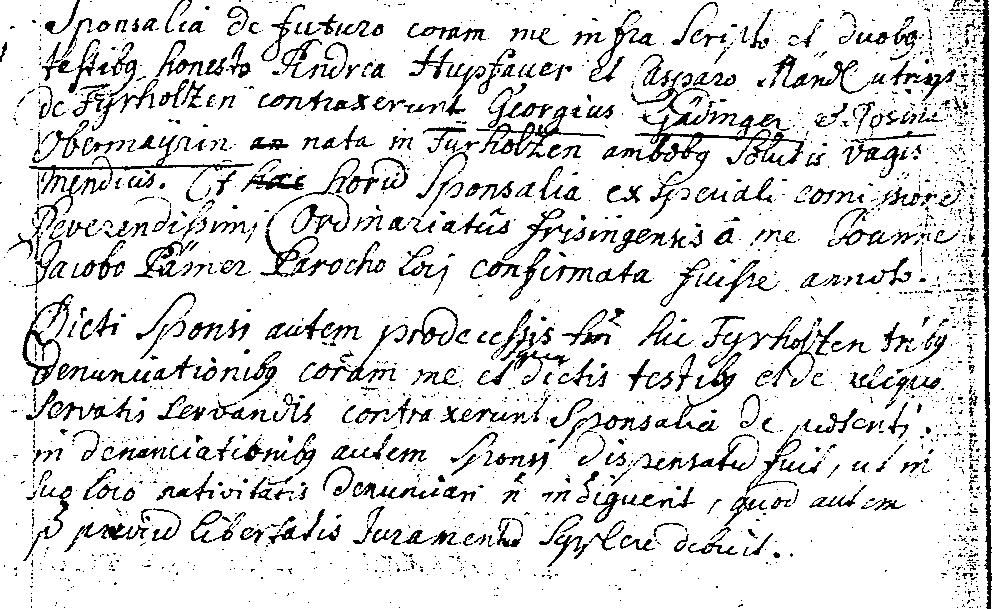 Sponsalia de futuro coram me infra scripto et duobg
testibg honesto Andrea Hupfauer et Casparo Mandl utrisqs
de Tyrholtzen contraxerunt Georgius Gädinger et Rosina
Obermayrin an nata in Türholtzen ambobg Solutis vagis
mendicis. Et hac horū Sponsalia ex speciali comissione
Reverendissimi Ordinariatûs frisingensis â me Joanne
Jacobo Pämer Parocho loci confirmata fuisse annoto.
Dicti Sponsi autem prodecessis hic Tyrholtzen tribg
denunciationibg coram me et dictis testibg et de reliquo
servatis servandis contraxerunt Sponsalia de p̄senti.
in denunciationibg autem Sponsi dispensatū fuit, ut in
suo loco nativitatis denunciari n̄ indiguerit, quod autem
p̄ p̄viū libertatis Juramentū debuit.